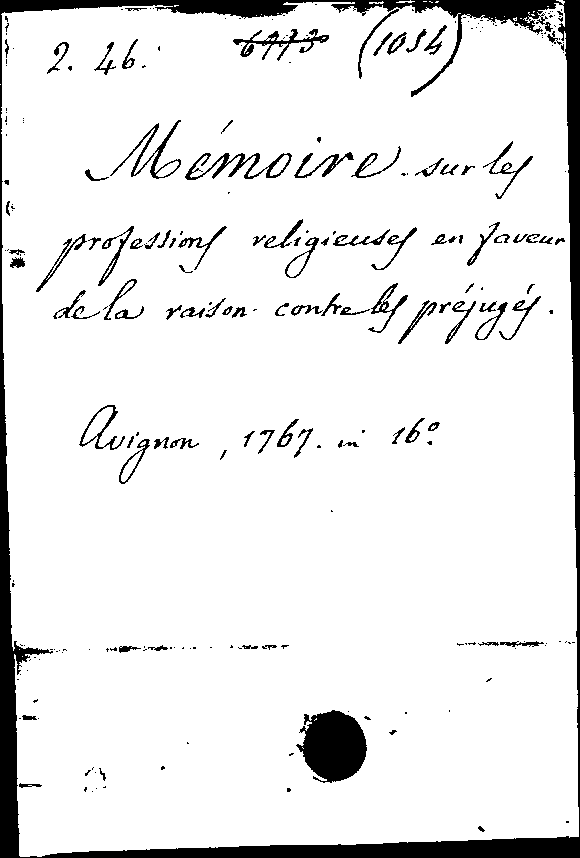 2. 46. 6773 (1054)
Mémoire sur les
professions religieuses en faveur
de la raison contre les préjugés.
Avignon, 1767. in 16º